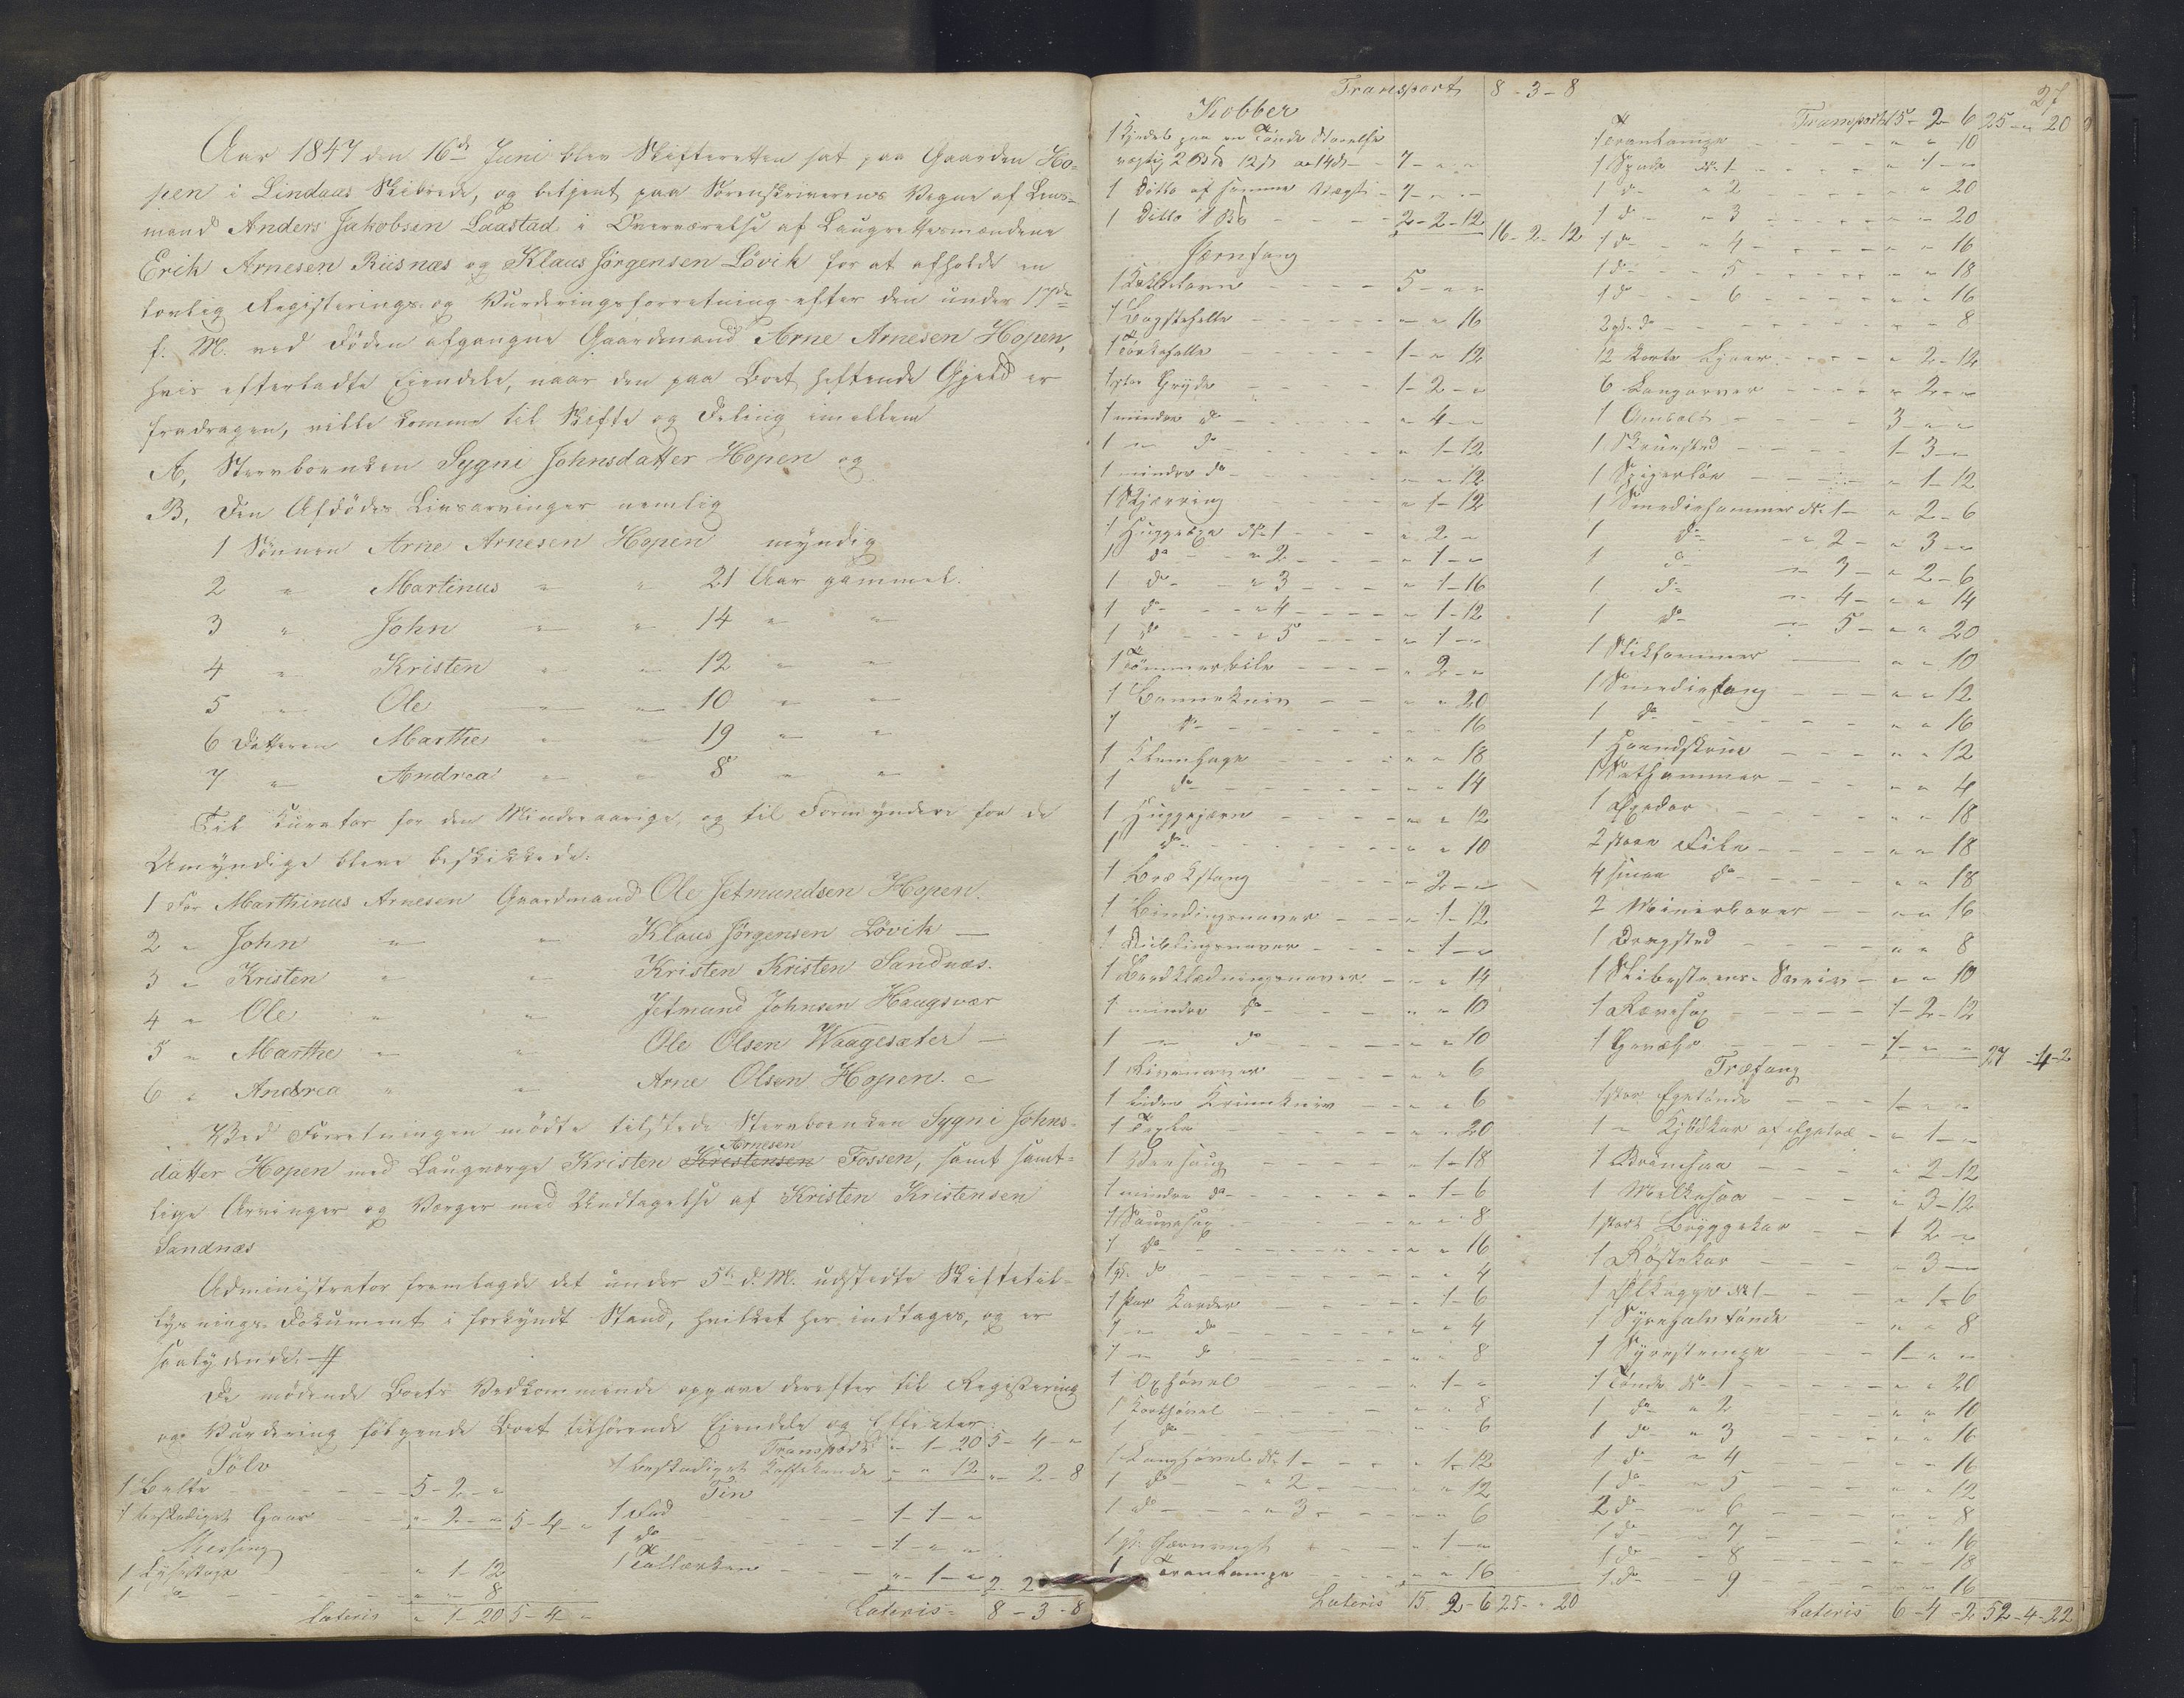 Aar 1847 den 16de Juni blev Skifteretten sat paa Gaarden Ho-
pen i Lindaas Skibrede, og betjent paa Sorenskriverens Vegne af Lens-
mand Anders Jakobsen Laastad i Overværelse af Laugrettesmændene
Erik Arnesen Riisnæs og Klaus Jörgensen Lövik for at afholde en
lovlig Registerings og Vurderingsforretning efter den under 17de
f. M. ved Döden afgangne Gaardmand Arne Arnesen Hopen,
hvis efterladte Eiendele, naar den paa Boet heftende Gjeld er
fradragen, vilde komme til Skifte og Deling imellem
A, Stervboenken Sygni Johnsdatter Hopen og
B, Den Afdödes Livsarvinger nemlig
1 Sönnen Arne Arnesen Hopen myndig
2 " Martinus " " 21 Aar gammel.
3 " John " " 14 " "
4 " Kristen " " 12 " "
5 " Ole " " 10 " "
6 Datteren Marthe " " 19 " "
7 " Andrea " " 8 " "
Til Kurator for den Mindreaarige, og til Formyndere for de
Umyndige bleve beskikkede:
1 For Marthinus Arnesen Gaardmand Ole Jetmundsen Hopen.
2 " John " " Klaus Jörgensen Lövik —
3 " Kristen " " Kristen Kristen Sandnæs.
4 " Ole " " Jetmund Johnsen Haugsvær
5 " Marthe " " Ole Olsen Waagesæter —
6 " Andrea " " Arne Olsen Hopen.
Ved Forretningen mödte tilstede Stervboenken Sygni Johns-
datter Hopen med Laugværge Kristen Kristensen Arnesen Fossen, samt samt-
lige Arvinger og Værger med Undtagelse af Kristen Kristensen
Sandnæs
Administrator fremlagde det under 5te d. M. udstedte Skiftetil-
lysnings-Dokument i forkyndt Stand, hvilket her indtages, og er
saalydende:
De mödende Boets Vedkommende opgave derefter til Registering
og Vurdering fölgende Boet tilhörende Eiendele og Effecter:
Sölv
1 Belte 5-2-"
1 beskadiget " 2 - " 5-4-"
Messing
1 Lysestage " 1-12
1 do " " 8
Lateris " 1-20 5-4-"
Transport " 1-20 5-4-"
1 beskadiget Kaffekande " " 12 " 2-8
Tin
1 Fad 1-1-"
1 do 1-"-"
1 Tallerken " 1-"
Lateris 8-3-8
Transport 8-3-8
Kobber
1 Kjedel paa en Tönde Störrelse
7-"-"
1 Ditto af samme Vægt 7-"-"
1 Ditto 2-2-12 16-2-12
Jernfang
1 Kakkelovn 5-"-"
1 Bagstehelle " " 16
1 Törkehelle 1-"-12
1 stor Gryde 1-2-"
1 mindre do " 4-"
1 " do " 1-12
1 mindre do " " 12
1 Skjærring " 1-12
1 Huggeöxe No 1 " 2-"
1 do " 2 " 1-"
1 do " 3 " 1-16
1 do " 4 " 1-12
1 do " 5 " 1-"
1 Tömmerbile " 2-"
1 " " 20
1 do " " 16
1 " " 18
1 do " " 14
1 Huggejærn " " 12
1 do " " 10
1 Brækstang " 2-"
1 Bindingsnaver " 1-12
1 " 1-"
1 Bordklædningsnaver " " 14
1 mindre do " " 10
1 " do " " 10
1 " " 6
1 liden Krumkniv " " 6
1 " " 20
1 " 1-18
1 mindre do " 1-6
1 Sauesax " " 8
1 do " " 16
1 gl. do " " 4
1 Par Karder " 1-6
1 " do " " 4
1 " do " " 8
1 Oxhövel " 1-"
1 Korthövel " " 8
1 do " " 6
1 Langhövel No 1 " 1-12
1 do " 2 " " 12
1 do " 3 " " 6
1 gl. Jærnvægt " 1-"
1 Tranlampe " " 16
Lateris 15 2-6 25-"-20
27
Transport 15-2-6 25-"-20
1 Tranlampe " " 10
1 Spade No 1 " 1-"
1 do " 2 " " 20
1 do " 3 " " 20
1 do " 4 " " 16
1 do " 5 " " 18
1 do " 6 " " 16
2 gl. do " " 8
12 korte Ljaaer " 2-12
6 Langorver " 2-"
1 Ambolt 3-"-"
1 Skruested 1-3-"
1 " 1-12
1 Smediehammer No 1 " 2-6
1 do " 2 " 3-"
1 do " 3 " 2-6
1 do " 4 " " 14
1 do " 5 " " 20
1 Slikhammer " " 10
1 Smedietang " " 12
1 do " " 16
1 Haandskrue " " 12
1 " " 4
1 " " 18
2 store File " " 18
4 smaa do " " 18
2 Minerborer " " 16
1 " " 8
1 " " 10
1 Rævesax 1-2-12
1 Gevær 1-"-" 27-4-2
Træfang
1 stor Egetönde 1-"-"
1 " Kjödkar af Egetræ " 1-"
1 " 2-12
1 Melkesaa " 3-12
1 stort Bryggekar 1 2-"
1 Röstekar " 3-"
1 Ölkagge No 1 " 1-6
1 Syrehalvtönde " " 8
1 Syrestampe 1-"-"
1 Tönde No 1 " " 20
1 do " 2 " " 10
1 do " 3 " " 16
1 do " 4 " " 16
1 do " 5 " " 12
2 do " 6 " " 8
1 do " 7 " " 16
1 do " 8 " " 18
1 do " 9 " " 16
Lateris 6-4-2 52-4-22